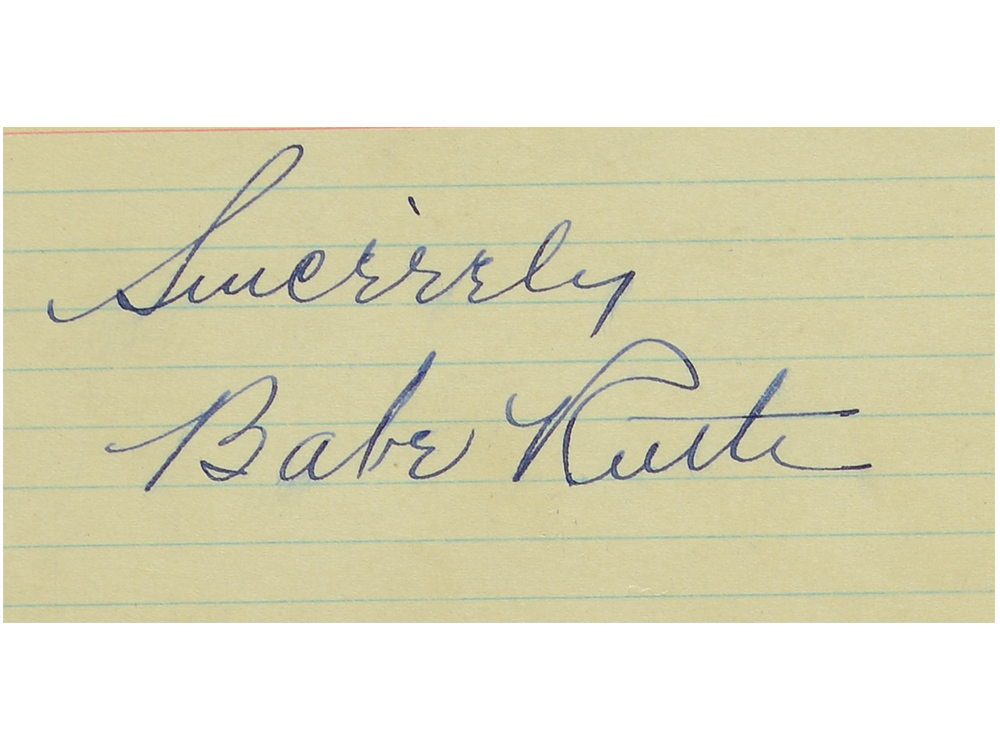 Sincerely
Babe Ruth